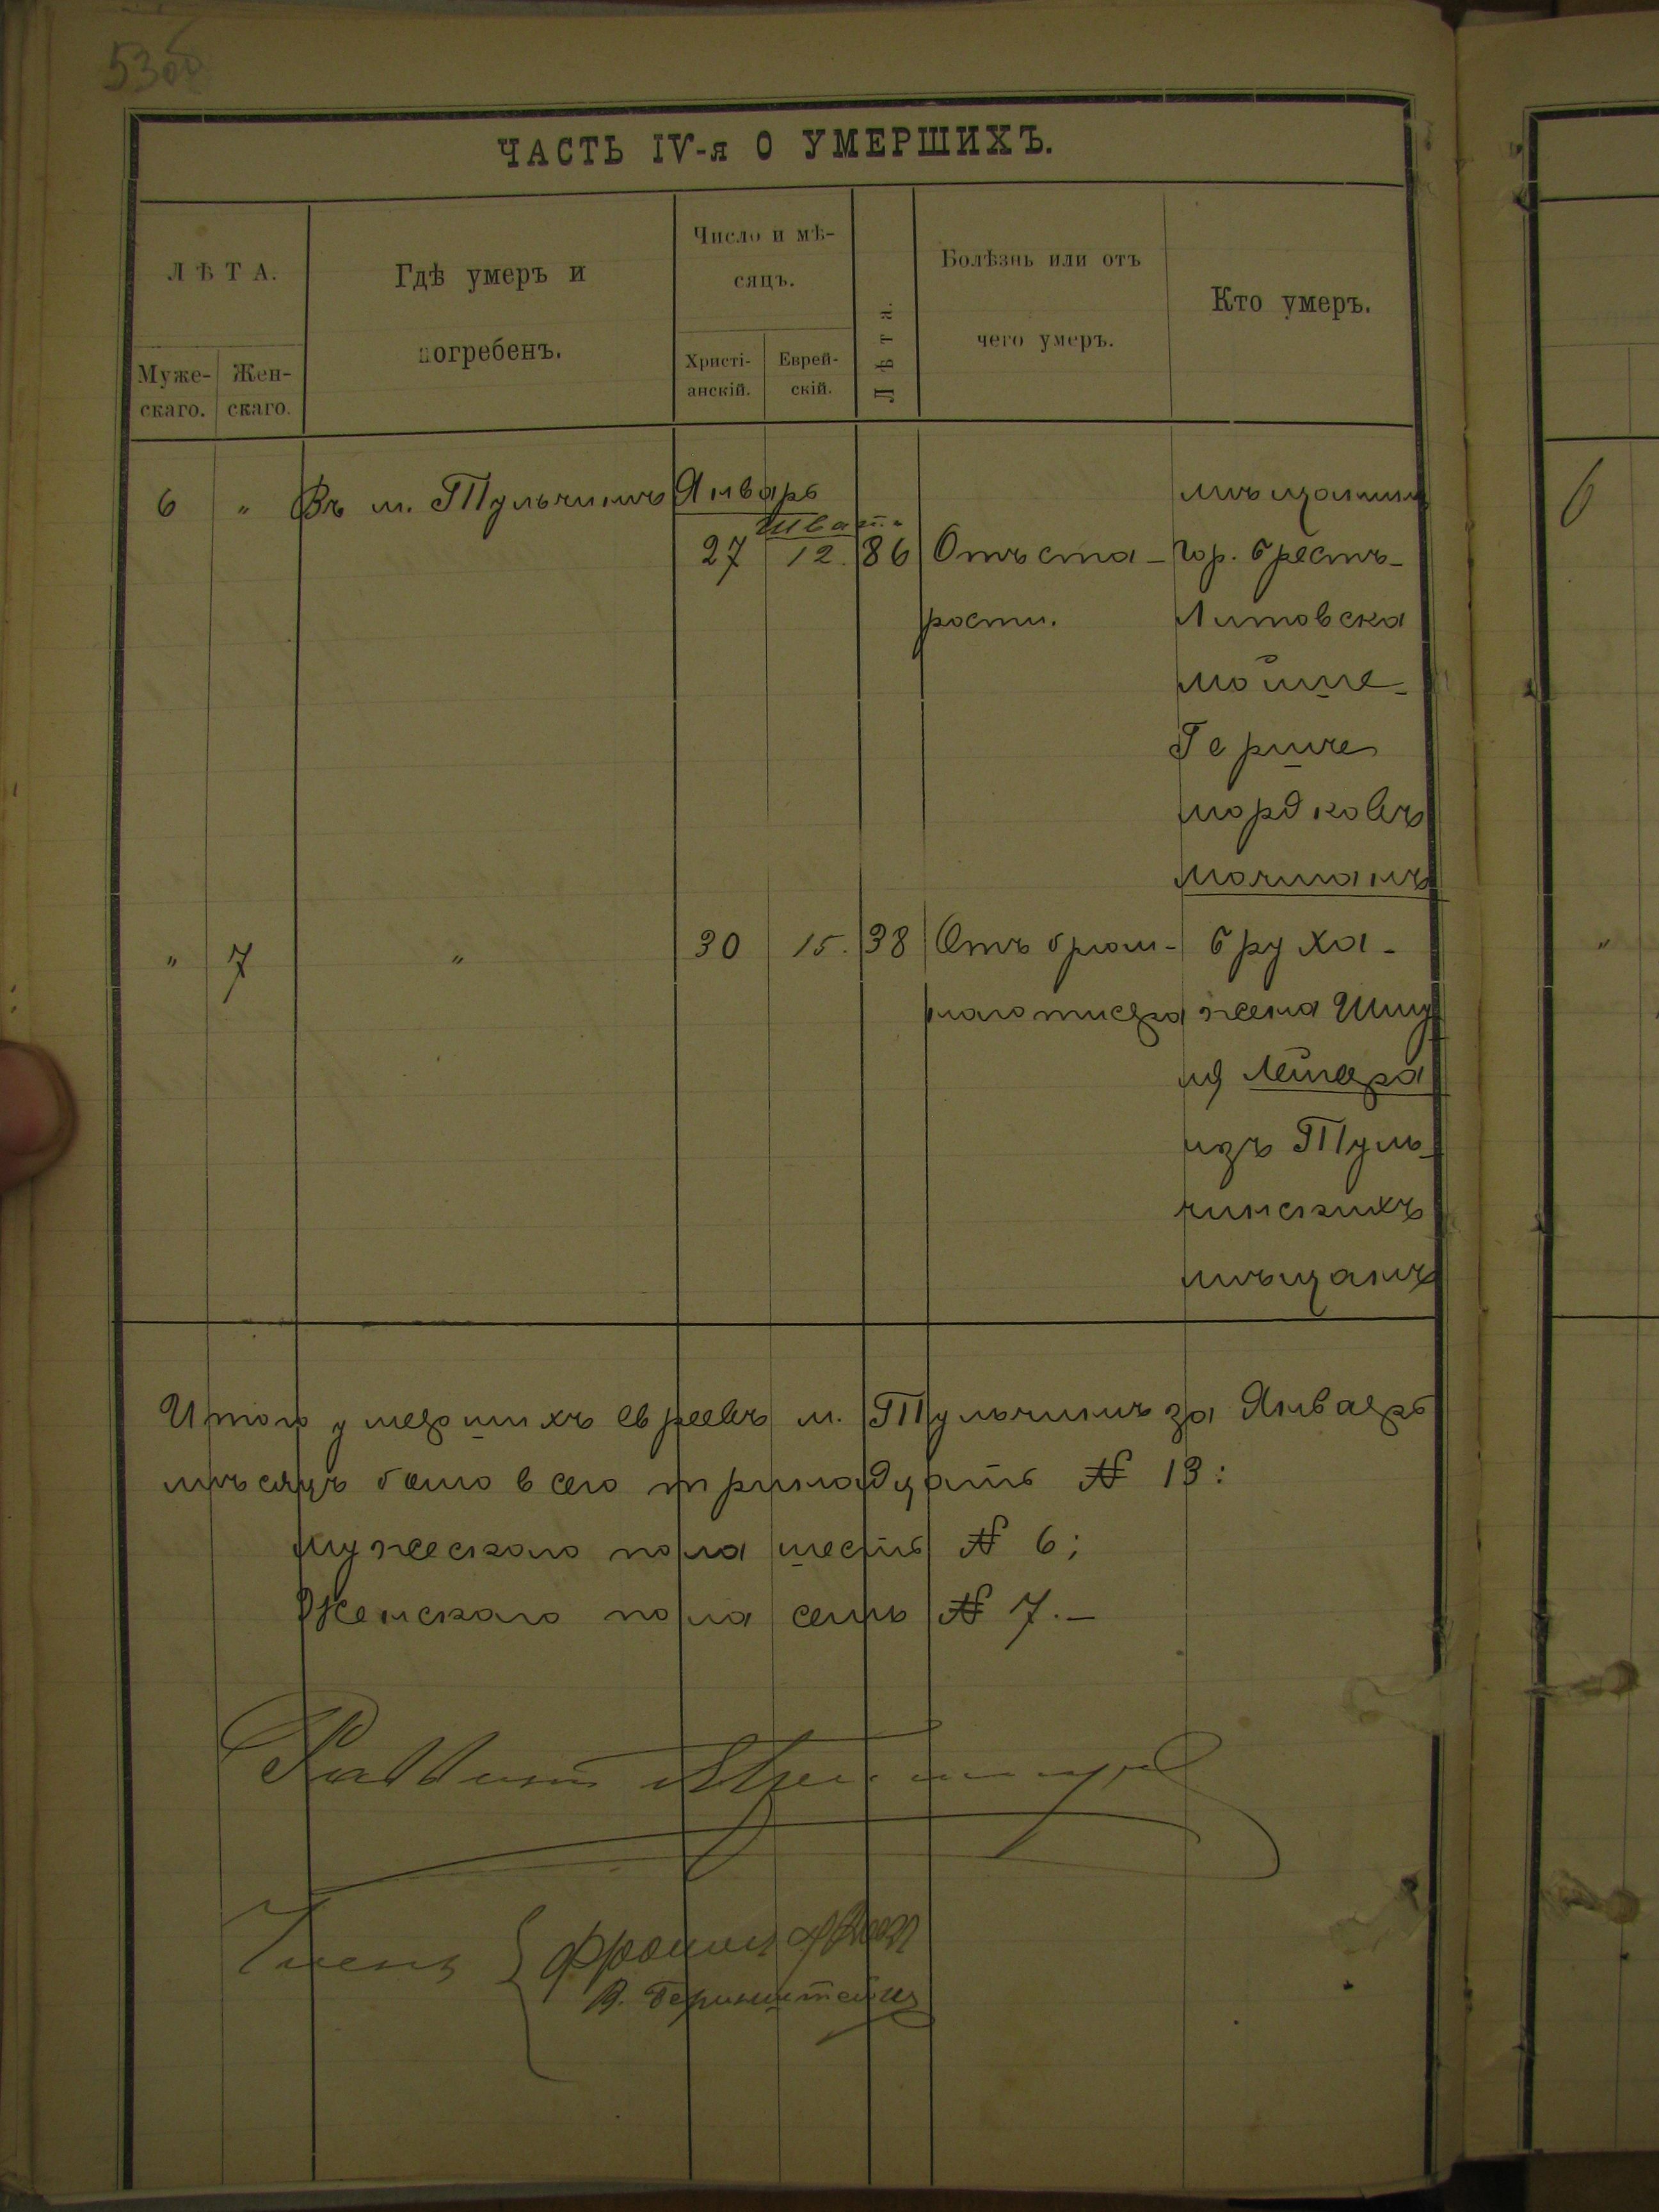 53об
ЧАСТЬ IV-я О УМЕРШИХЪ.
ЛѢТА.
Муже-
скаго.
Жен-
скаго.
Гдѣ умеръ и
погребенъ.
Число и мѣ-
сяцъ.
Христі-
анскій.
Еврей-
скій.
Лѣта.
Болѣзнь или отъ
чего умеръ.
Кто умеръ.
6 " Въ м. Тульчинѣ Январь
Шват.
27 12. 86
Отъ ста-
рости.
мѣщанинъ
гор. Брестъ-
Литовска
Мойше-
Герше
Мордковъ
" 7 " 30 15. 38
Отъ брюш-
наго тифа
Бруха-
жена Шму
ля Лейзера
изъ Туль-
чинскихъ
мѣщанъ
Итого умершихъ евреевъ м. Тульчинѣ за Январь
мѣсяцъ было всего тринадцать № 13:
мужескаго пола шесть № 6;
Женскаго пола семь № 7.-
Раввинъ
Члены
В. Беринштейнъ
6
"